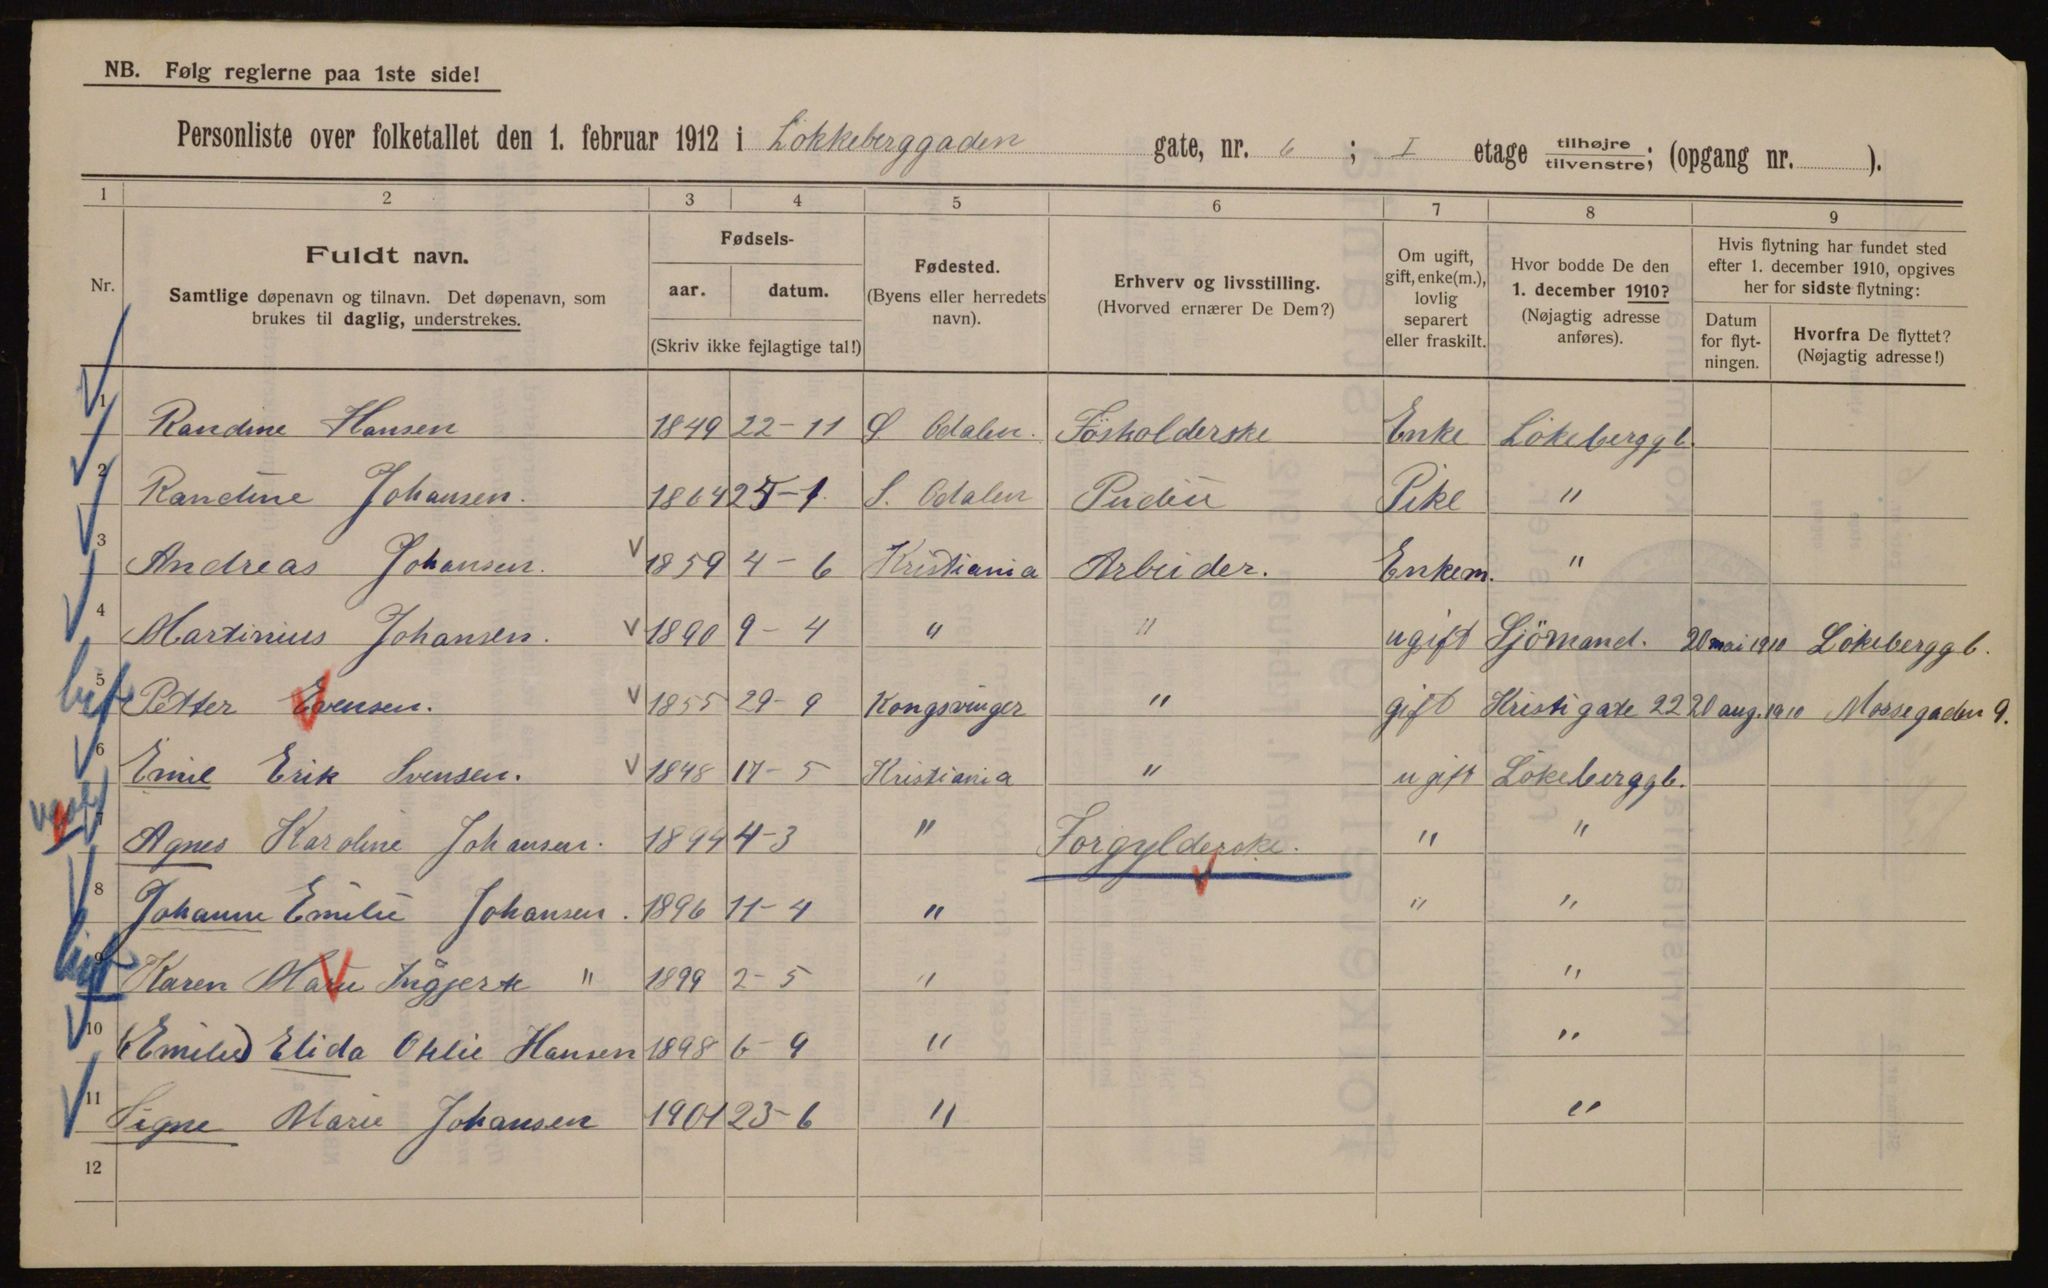 NB. Følg reglerne paa 1ste side!
Personliste over folketallet den 1. februar 1912 i Lökkeberggaden gate, nr. 6 ; I etage tilhøjre / tilvenstre; (opgang nr. ).
1 2 3 4 5 6 7 8 9
Nr.
Fuldt navn.
Samtlige døpenavn og tilnavn. Det døpenavn, som
brukes til daglig, understrekes.
Fødsels-
aar. datum.
(Skriv ikke fejlagtige tal!)
Fødested.
(Byens eller herredets
navn).
Erhverv og livsstilling.
(Hvorved ernærer De Dem?)
Om ugift,
gift, enke(m.),
lovlig
separert
eller fraskilt.
Hvor bodde De den
1. december 1910?
(Nøjagtig adresse
anføres).
Hvis flytning har fundet sted
efter 1. december 1910, opgives
her for sidste flytning:
Datum
for flyt-
ningen.
Hvorfra De flyttet?
(Nøjagtig adresse!)
1 Randine Hansen 1849 22-11 S Odalen. Enke Lökeberggt.
2 Randine Johansen. 1864 25-1. S. Odalen Pike "
3 Andreas Johansen. 1859 4-6 Kristiania Arbeider. Enkem. "
4 Martinius Johansen. 1890 9-4 " " ugift Sjömand. 20 mai 1910 Lökeberggt.
5 Petter Evensen. 1855 29-9 Kongsvinger " gift Kristigate 22 20 aug. 1910 Mossegaden 9.
6 Emil Erik Svensen. 1848 17-5 Kristiania " ugift Lökeberggt.
7 Agnes Karoline Johansen. 1894 4-3 " Forgylderske. " "
8 Johanne Emilie Johansen. 1896 11-4 " " "
9 Karen Marie " 1899 2-5 " "
10 (Emilie) Elida Hansen 1898 6-9 " "
11 Signe Marie Johansen 1901 23-6 " "
12